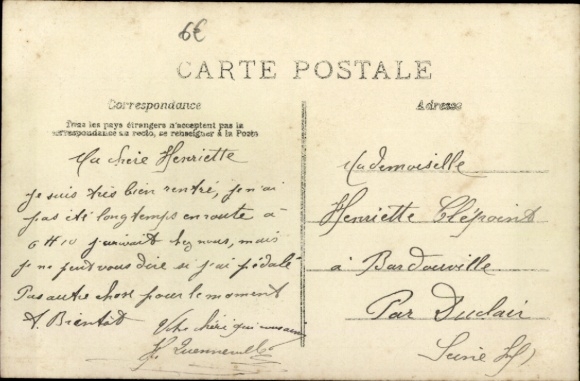 6€
CARTE POSTALE
Correspondance
Tous les pays étrangers n'acceptent pas la
correspondance au recto, se renseigner à la Poste
Ma chère Henriette
Je suis très bien rentré, je n'ai
pas été longtemps en route à
6 H 10 j'arrivait chez nous, mais
je ne peut vous dire si j'ai pédalé
Pas autre chose pour le moment
A Bientôt Votre chéri qui vous aime
Adresse
Mademoiselle
Henriette Clépoint
à Bardouville
Par Duclair
Seine Inf